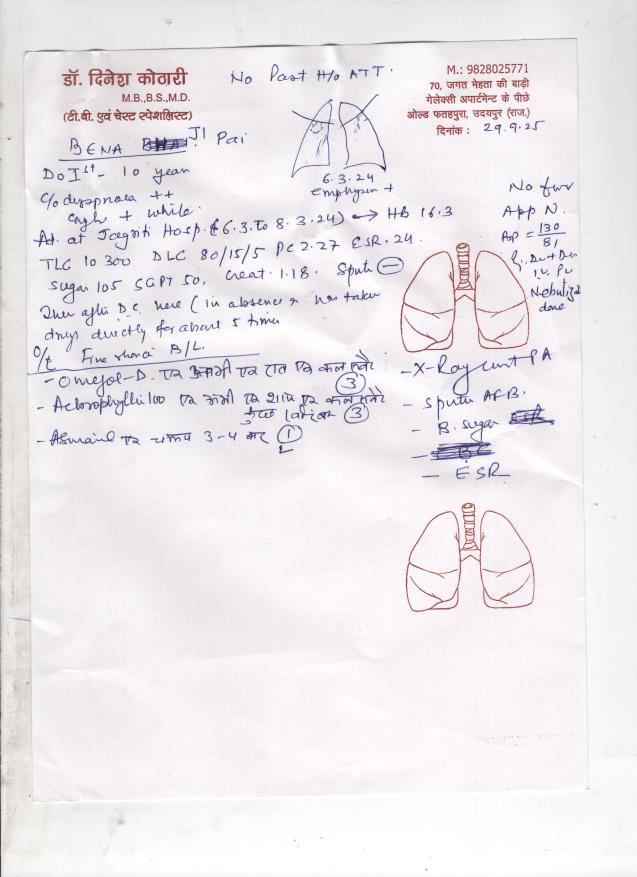 डॉ. दिनेश कोठारी
M.B.,B.S.,M.D.
(टी.बी. एवं चेस्ट स्पेशलिस्ट)
No Past H/o ATT.
M.: 9828025771
70, जगत मेहता की बाड़ी
गेलेक्सी अपार्टमेन्ट के पीछे
ओल्ड फतहपुरा, उदयपुर (राज.)
दिनांक : 29.9.25
BENA JI Pai
6.3.24
emphysem +
DoIst - 10 year
c/o dyspnoea ++
cough + white.
Ad. at Jagriti Hosp. (6.3. to 8.3.24) → HB 16.3
TLC 10300 DLC 80/15/5 PC 2.27 ESR. 24.
Sugar 105 SGPT 50, Creat. 1.18. Sputu –
after D.C. here (in absence
drugs directly for about 5 times
O/E Fine rhonchi B/L.
No fever
App N.
BP = 130/81
Nebulized
done
- Omejol-D. एक अभी एक रात एक कल सवेरे (3)
- Acbrophyllin 100 एक अभी एक शाम एक कल सवेरे
(3)
- Asmanil एक चम्मच 3-4 बार (1)
- X-Ray chest PA
- Sputu AFB.
- B. Sugar
- ESR